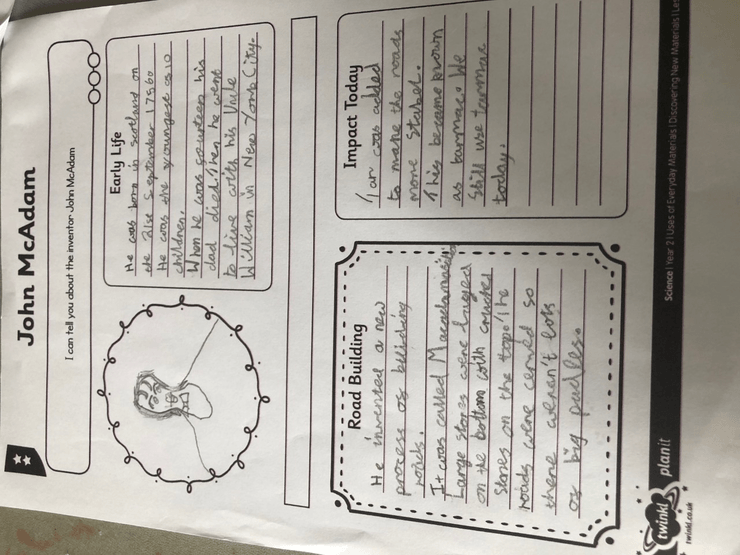 John McAdam
I can tell you about the inventor John McAdam
Early Life
He was born in scotland on
the 21st September 17560
He was the youngest of 10
children.
When he was fourteen his
dad died. Then he went
to live with his Uncle
William in New York City.
Road Building
He invented a new
process of building
roads.
It was called
Large stones were
on the bottom with crushed
stones on the top. The
roads were curved so
there weren't lots
of big pudles.
Impact Today
Tar was added
to make the roads
more stabel.
This became known
as tarmac. We
still use tarmac
today.
twinkl
planit
twinkl.co.uk
Science | Year 2 | Uses of Everyday Materials | Discovering New Materials | Les